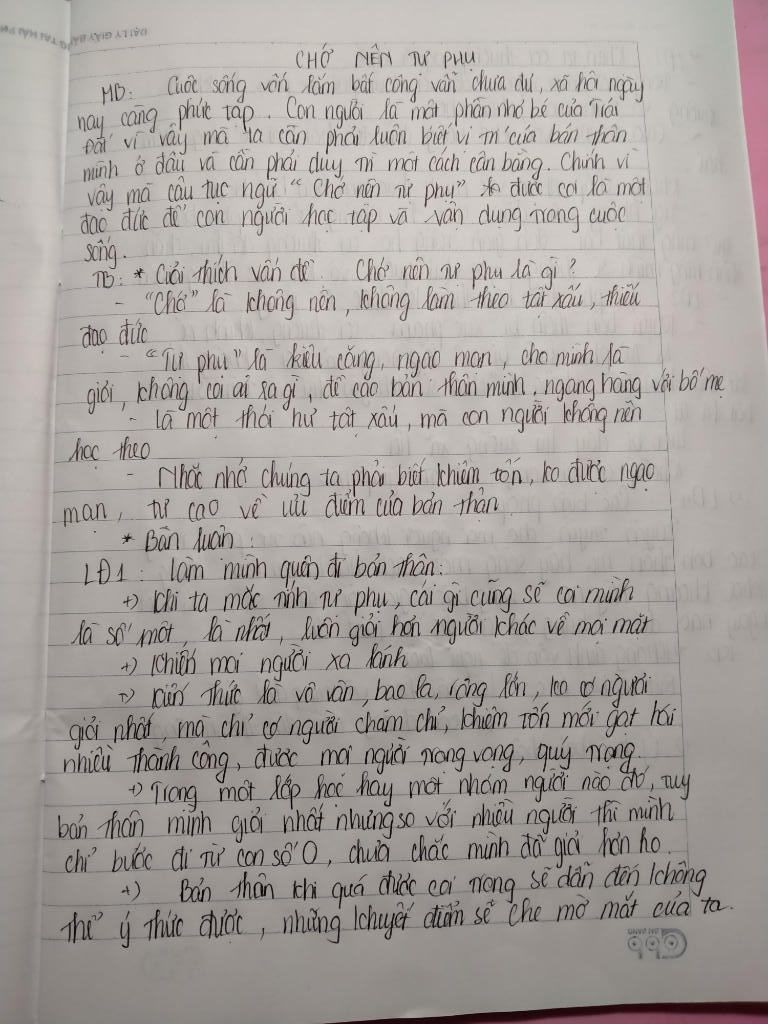 ĐẠI LÝ GIẤY BÃNG TÀI HẢI
CHỚ NÊN TỰ PHỤ
MB: Cuộc sống vốn lắm bất công vẫn chưa đủ, xã hội ngày
nay càng phức tạp. Con người là một phần nhỏ bé của Trái
Đất vì vậy mà ta cần phải luôn biết vị trí của bản thân
mình ở đâu và cần phải duy trì một cách cân bằng. Chính vì
vậy mà câu tục ngữ "Chớ nên tự phụ" được coi là một
đạo đức để con người học tập và vận dụng trong cuộc
sống.
TB: * Giải thích vấn đề. Chớ nên tự phụ là gì?
- "Chớ" là không nên, không làm theo tật xấu, thiếu
đạo đức
- "Tự phụ" là kiêu căng, ngạo mạn, cho mình là
giỏi, không coi ai ra gì, đề cao bản thân mình, ngang hàng với bố mẹ
- là một thói hư tật xấu, mà con người không nên
học theo
- Nhắc nhở chúng ta phải biết khiêm tốn, ko được ngạo
mạn, tự cao về ưu điểm của bản thân
* Bàn luận:
LĐ1: làm mình quên đi bản thân:
+) Khi ta mắc tính tự phụ, cái gì cũng sẽ coi mình
là số một, là nhất, luôn giỏi hơn người khác về mọi mặt
+) Khiến mọi người xa lánh
+) Kiến thức là vô vàn, bao la, rộng lớn, ko có người
giỏi nhất, mà chỉ có người chăm chỉ, khiêm tốn mới gạt hái
nhiều thành công, được mọi người trọng vọng, quý trọng.
+) Trong một lớp học hay một nhóm người nào đó, tuy
bản thân mình giỏi nhất nhưng so với nhiều người thì mình
chỉ bước đi từ con số 0, chưa chắc mình đã giỏi hơn họ.
+) Bản thân khi quá được coi trọng sẽ dẫn đến không
thể ý thức được, những khuyết điểm sẽ che mờ mắt của ta.
HẢI ĐĂNG